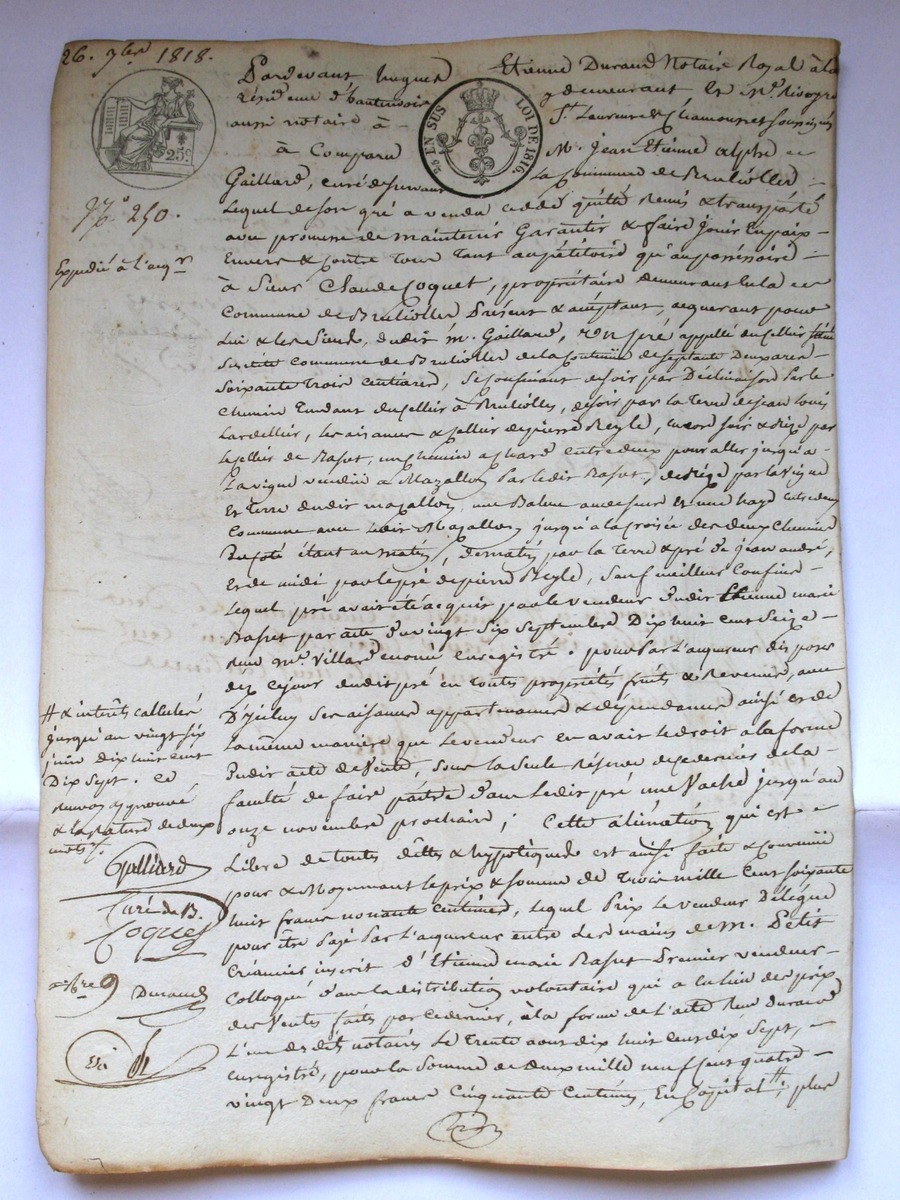 26. 7bre 1818.
Pardevant Hugues Etienne Durand Notaire Royal à la
résidence d'hauterivoire y demeurant et
aussi notaire à St. Laurent de Chamousset soussignés
à Comparu M. Jean Etienne
Gaillard, curé desservant la Commune de Brulliolles
Lequel de son gré a vendu cédé quitté Remis & transporté
avec promesse de maintenir Garantir & faire jouir En paix
Envers & contre tous tant au pétitoire qu'au possessoire
à Sieur Claude Coquet, propriétaire demeurant en la
Commune de Brulliolles Présent & acceptant, acquerant pour
Lui & les Siens, dudit m. Gaillard, un pré appellé du Cellier situé
Susdite Commune de Brulliolles de la Contenue de septante deux ares
soixante trois centiares, Se Confinant de soir par Déclinaison par le
Chemin Tendant du Cellier à Brulliolles, de soir par la Terre de Jean Louis
Lardellier, les aisances & cellier de pierre Reyle, encore soir & bize par
le cellier de Rafut, un chemin entre deux pour aller jusqu'a
La vigne vendue a Mazallon par ledit Rafut, de bize par la vigne
et Terre dudit mazallon, une Balme au dessus et une haye entre deux
Commune avec Ledit Mazallon jusqu'a la croisée des deux Chemins
du coté étant au matin, de matin par la Terre & pré de jean andré,
et de midi par le pré de pierre Reyle, Sauf meilleurs Confins
Lequel pré avait été acquis par le vendeur dudit Etienne marie
Rafut par acte du vingt Six Septembre Dix huit cent Seize
Reçu me. Villard enregistré. pour par L'acquereur disposer
dez cejour dudit pré en toutes propriétés fruits & Revenus, avec
D'icelui Ses aisances appartenances & dépendances ainsi et de
La même manière que le vendeur en avait le droit a la forme
dudit acte de Vente, sous la Seule Réserve de ce dernier de la
faculté de faire paitre dans Ledit pré une Vache jusqu'au
onze novembre prochain; Cette aliénation qui est
Libre de toutes dettes & hypothèques est ainsi faite & Convenue
pour & Moyennant le prix & somme de Trois mille Cent soixante
huit francs nonante centimes, lequel Prix Le vendeur Délègue
pour être Payé Par L'acquereur entre Les mains de m. Petit
Créancier inscrit d'Etienne marie Rafut Premier vendeur
Colloqué dans la distribution volontaire qui a eu lieu des prix
des Ventes faites par ce dernier, à la forme de L'acte Reçu durand
L'un desdits notaires Le Trente aout dix huit cent dix Sept,
enregistré, pour la Somme de deux mille neuf cent quatre
vingt Deux francs Cinquante Centimes, En Capital #; plus
No. 250.
Expédié à l'acqr.
# & intérêts calculés
jusqu'au vingt six
juin dix huit cent
Dix Sept. Ce
renvoi approuvé
& la rature de deux
mots.
Galliard
Curé de B.
Coquet
Durand
25 C.
25C EN SUS
LOI DE 1816.